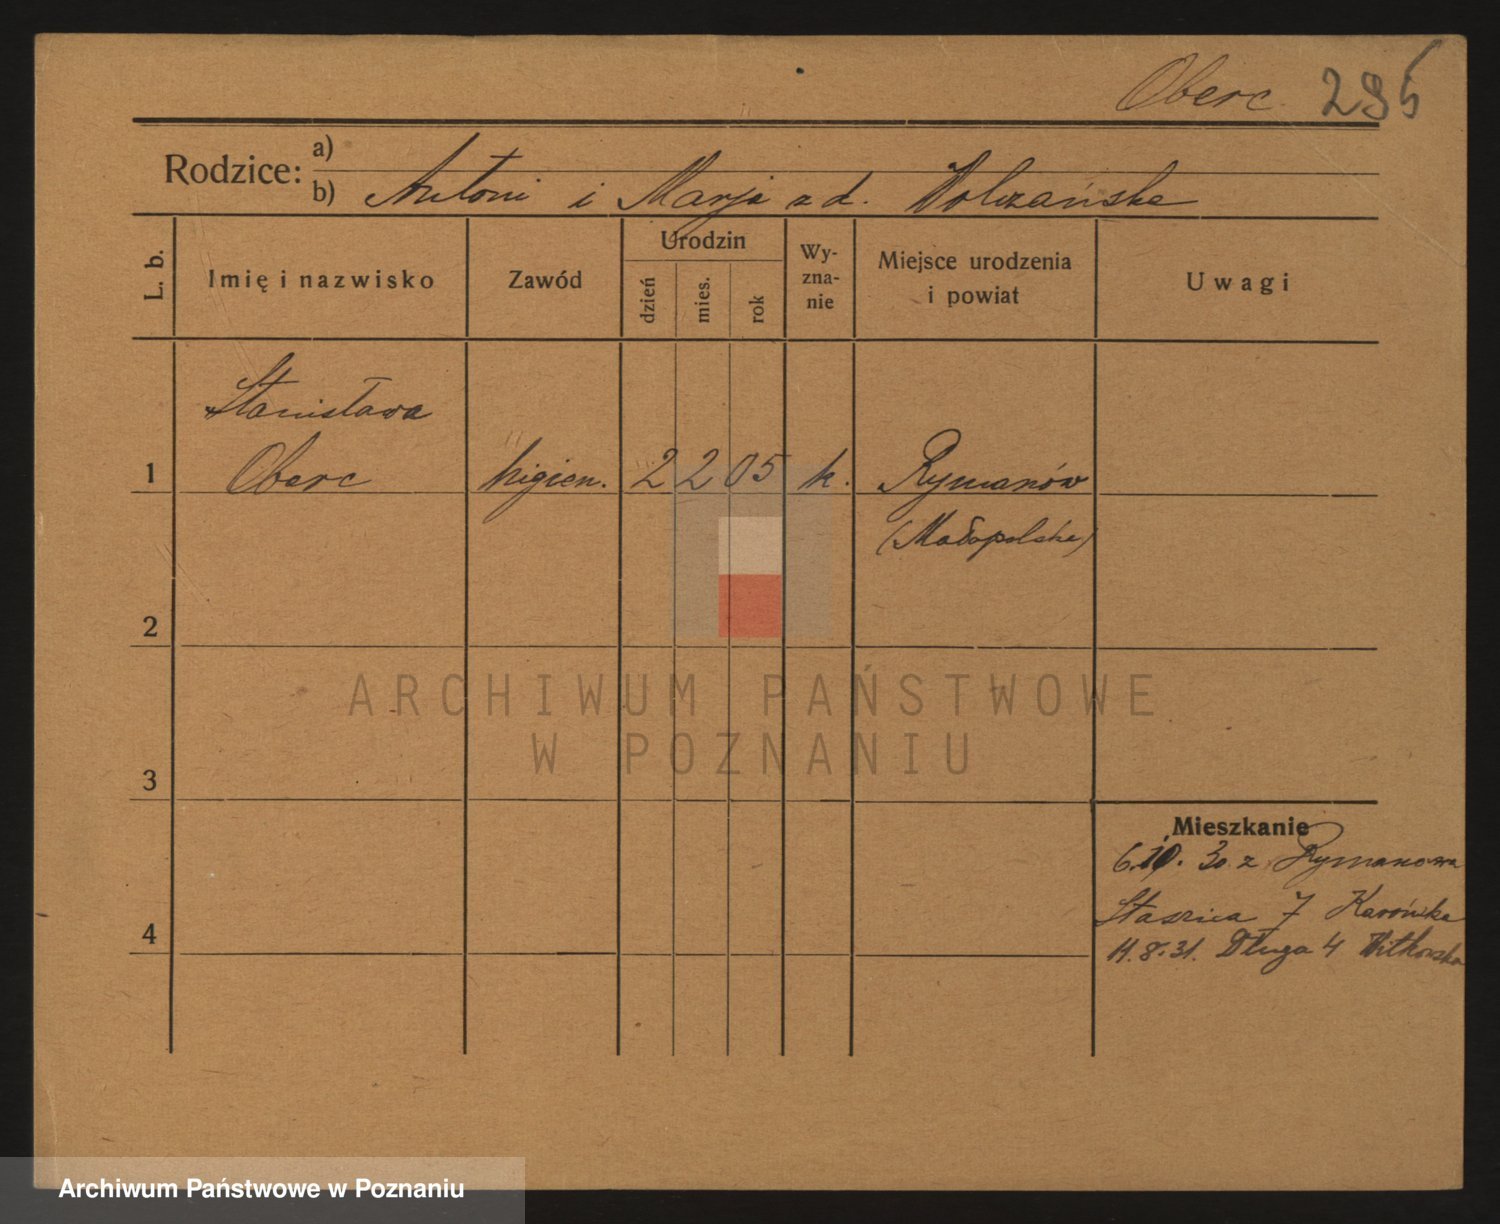 Oberc 295
Rodzice: a)
b) Antoni i Marja z d. Wolczańska
L. b.
Imię i nazwisko
Zawód
Urodzin
dzień
mies.
rok
Wy-
zna-
nie
Miejsce urodzenia
i powiat
Uwagi
Stanisława
1 Oberc higien. 2 2 05 k. Rymanów
(Małopolska)
2
3
4
Mieszkanie
6.10.30 z Rymanowa
Staszica 7
11.8.31. Długa 4 Witkowska
ARCHIWUM PAŃSTWOWE
W POZNANIU
Archiwum Państwowe w Poznaniu